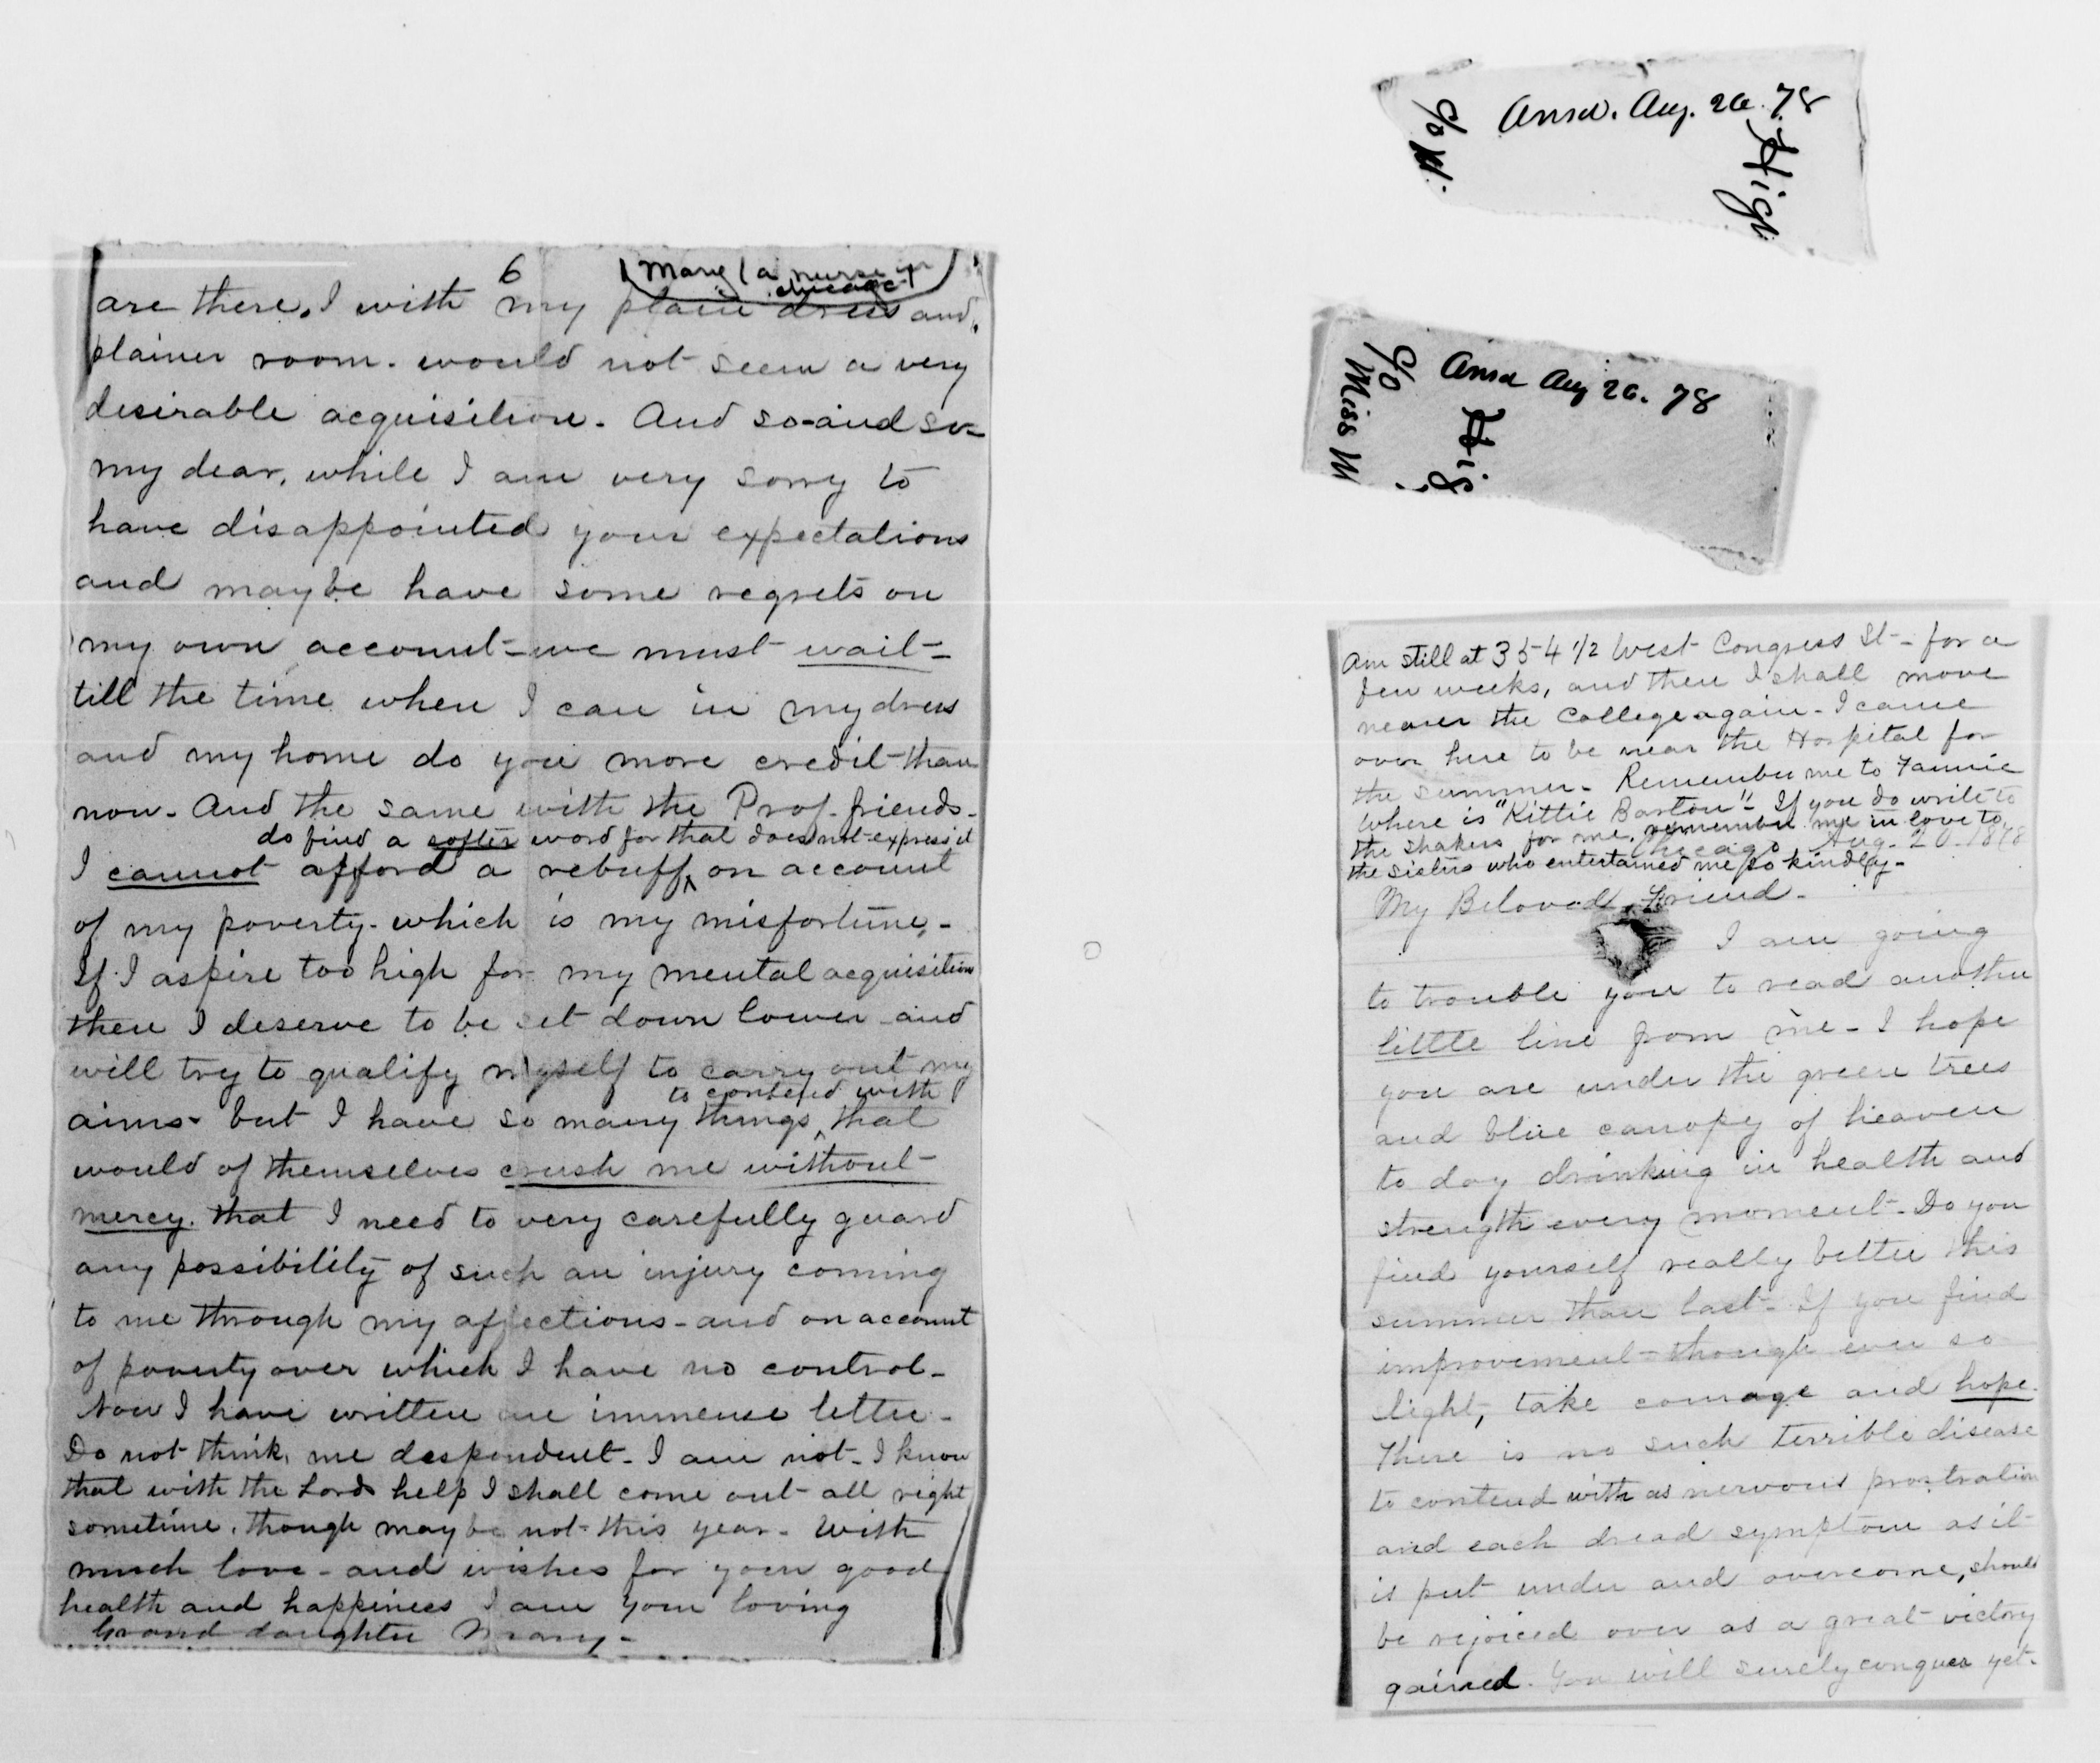 6
(Mary (a nurse in
chicago)
are there. I with my plain dress and
plainer room - would not seem a very
desirable acquisition - And so - and so -
my dear, while I am very sorry to
have disappointed your expectations
and maybe have some regrets on
my own account - we must wait -
till the time when I can in my dress
and my home do you more credit than
now - And the same with the Prof. friends -
do find a softer word for that does not express it
I cannot afford a rebuff ^ on account
of my poverty - which is my misfortune, -
If I aspire too high for my mental acquisition
then I deserve to be set down lower and
will try to qualify myself to carry out my
to contend with
aims - but I have so many things ^ that
would of themselves crush me without
mercy. that I need to very carefully guard
any possibility of such an injury coming
to me through my affections - and on account
of poverty over which I have no control -
Now I have written an immense letter -
Do not think me despondent - I am not - I know
that with the Lords help I shall come out all right
sometime, though maybe not this year - With
much love - and wishes for your good
health and happiness I am your loving
Grand daughter Mary -
Ansd. Aug. 26. 78
c/o M.
Hig
Ansd Aug 26. 78
c/o
Miss M
Hig
Am still at 354 1/2 West Congress St - for a
few weeks, and then I shall move
nearer the College again - I came
over here to be near the Hospital for
the summer - Remember me to Fannie
Where is "Kittie Barton" - If you do write to
the shakers for me, remember me in love to
the sisters who entertained me so kindly -
Chicago Aug. 20. 1878
My Beloved Friend -
I am going
to trouble you to read another
little line from me - I hope
you are under the green trees
and blue canopy of heaven
to day drinking in health and
strength every moment - Do you
find yourself really better this
summer than last - If you find
improvement - though ever so
slight, take courage and hope.
There is no such terrible disease
to contend with as nervous prostration
and each dread symptom as it
is put under and overcome, should
be rejoiced over as a great victory
gained. You will surely conquer yet -